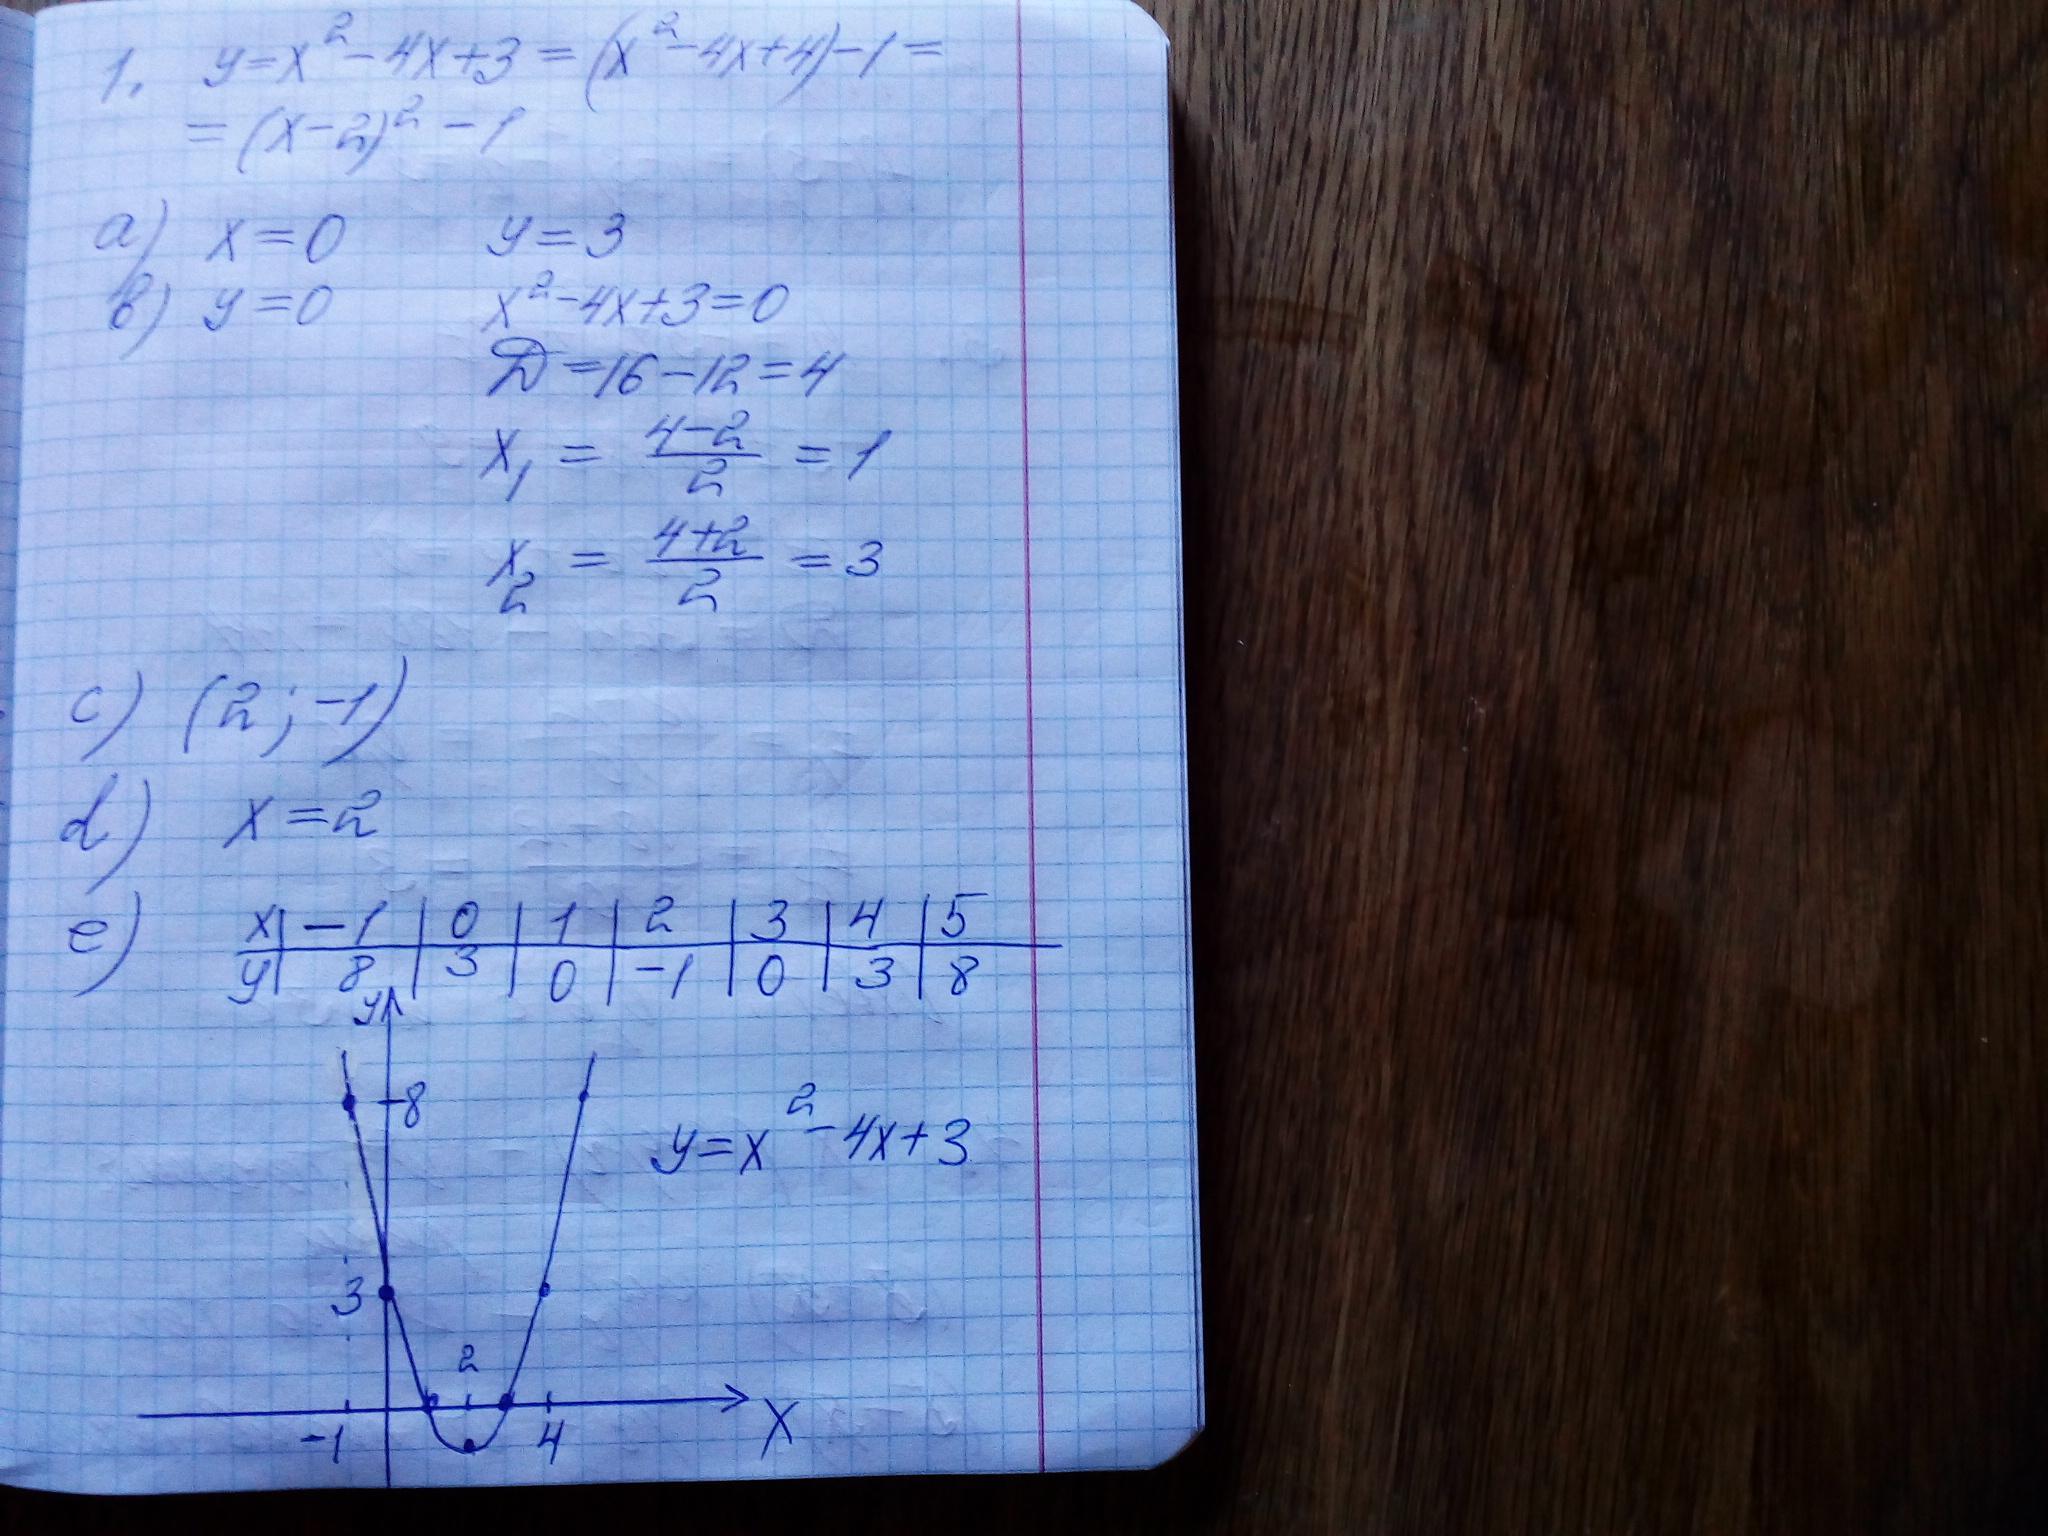 1. y=x²-4x+3=(x²-4x+4)-1=
=(x-2)²-1
a) x=0 y=3
b) y=0 x²-4x+3=0
D=16-12=4
x₁ = (4-2)/2 = 1
x₂ = (4+2)/2 = 3
c) (2;-1)
d) x=2
e) x | -1 | 0 | 1 | 2 | 3 | 4 | 5
y | 8 | 3 | 0 | -1 | 0 | 3 | 8
y
8
y=x²-4x+3
3
2
-1 4 X